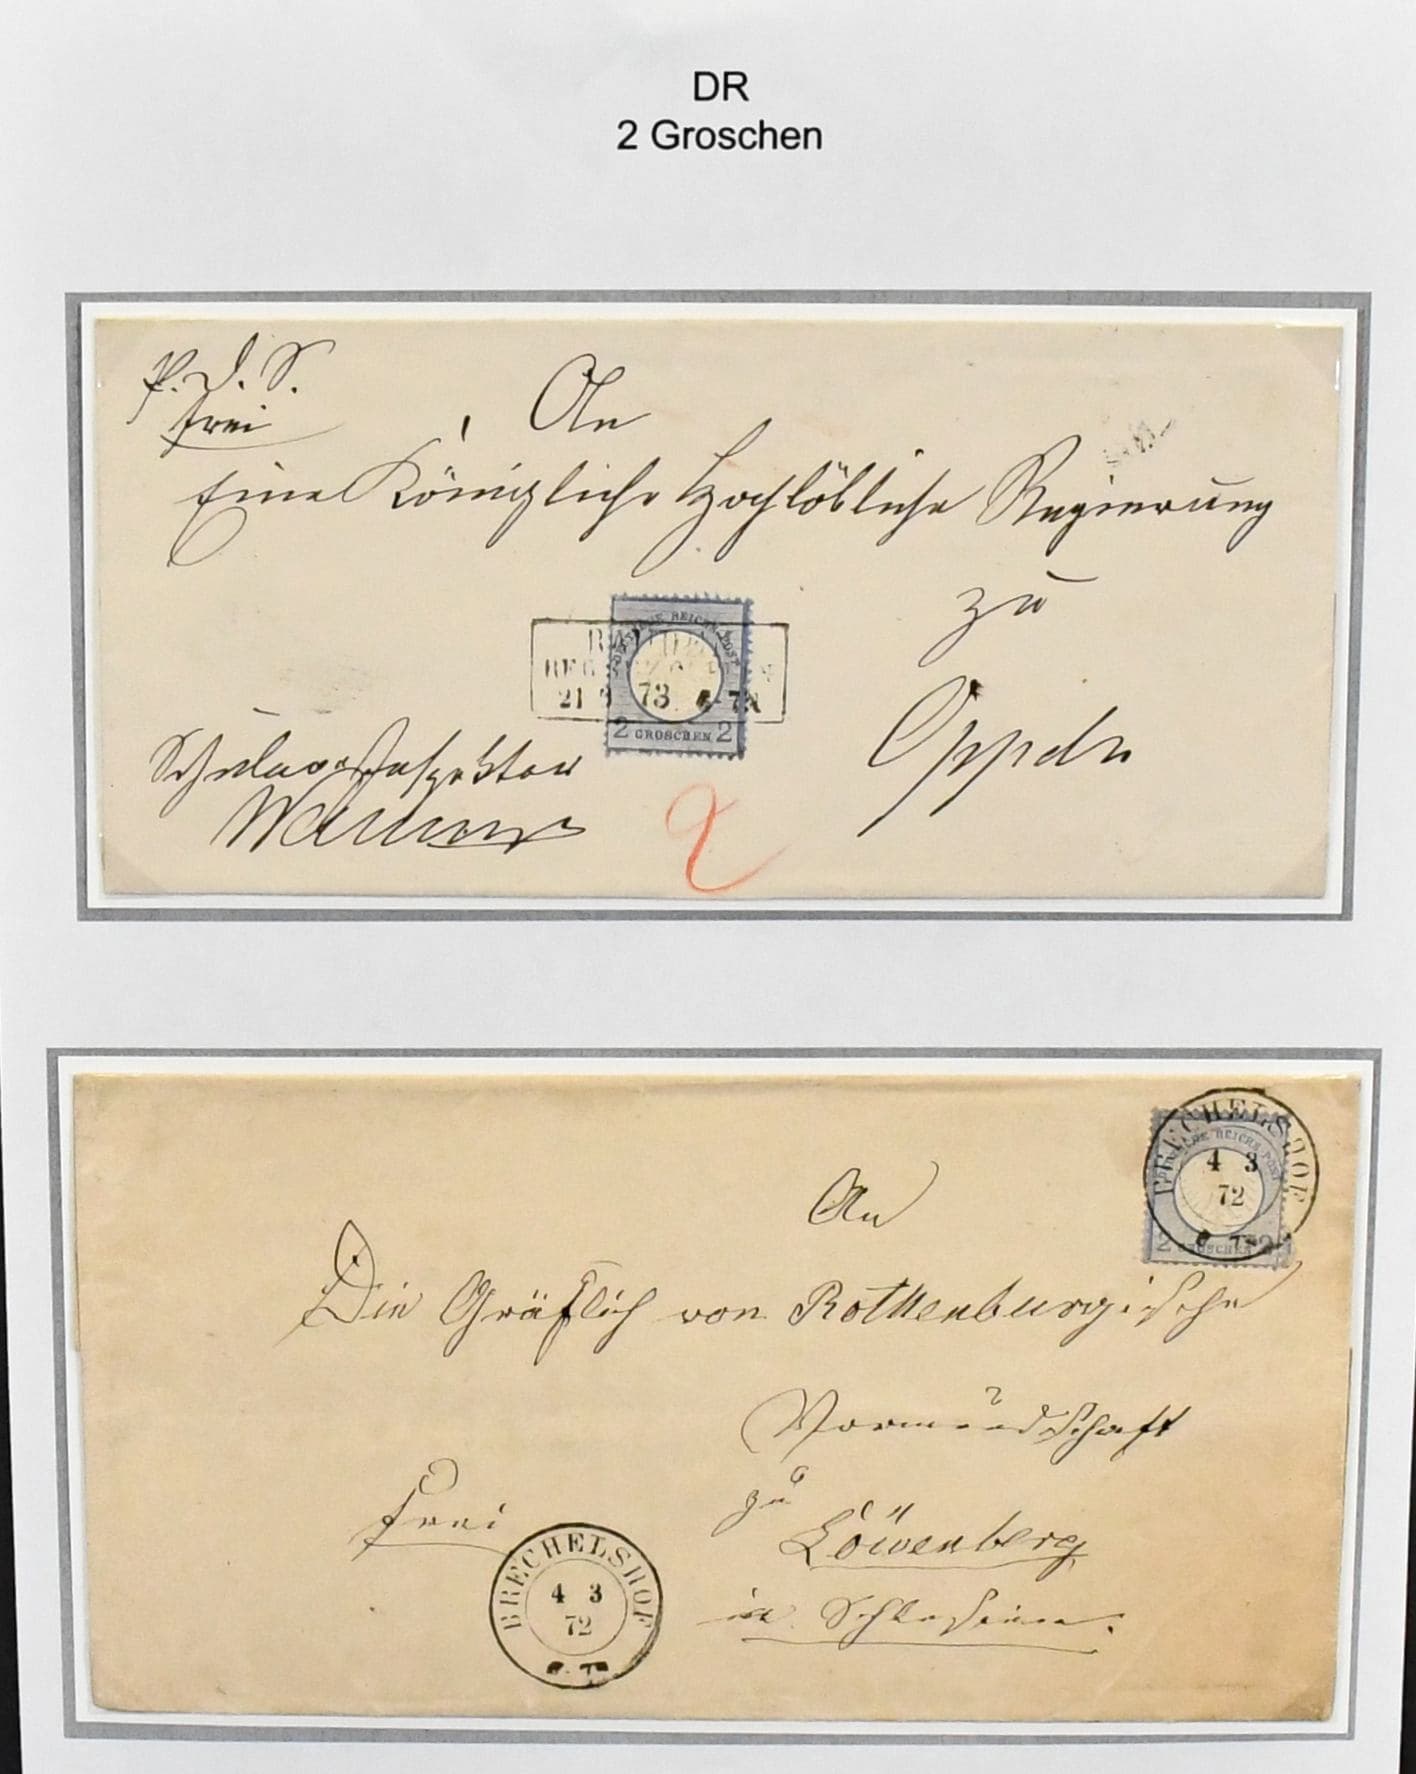 DR
2 Groschen
frei
An
Eine Königliche Hochlöbliche Regierung
zu
DEUTSCHE REICHS-POST
21 73
2 GROSCHEN 2
Oppeln
2
BRECHELSHOF
REICHS-POST
4 3
72
2 GROSCHEN 2
An
Die Gräflich von Rothenburgische
Vormundschaft
zu
frei
Löwenberg
BRECHELSHOF
4 3
72
in Schlesien.